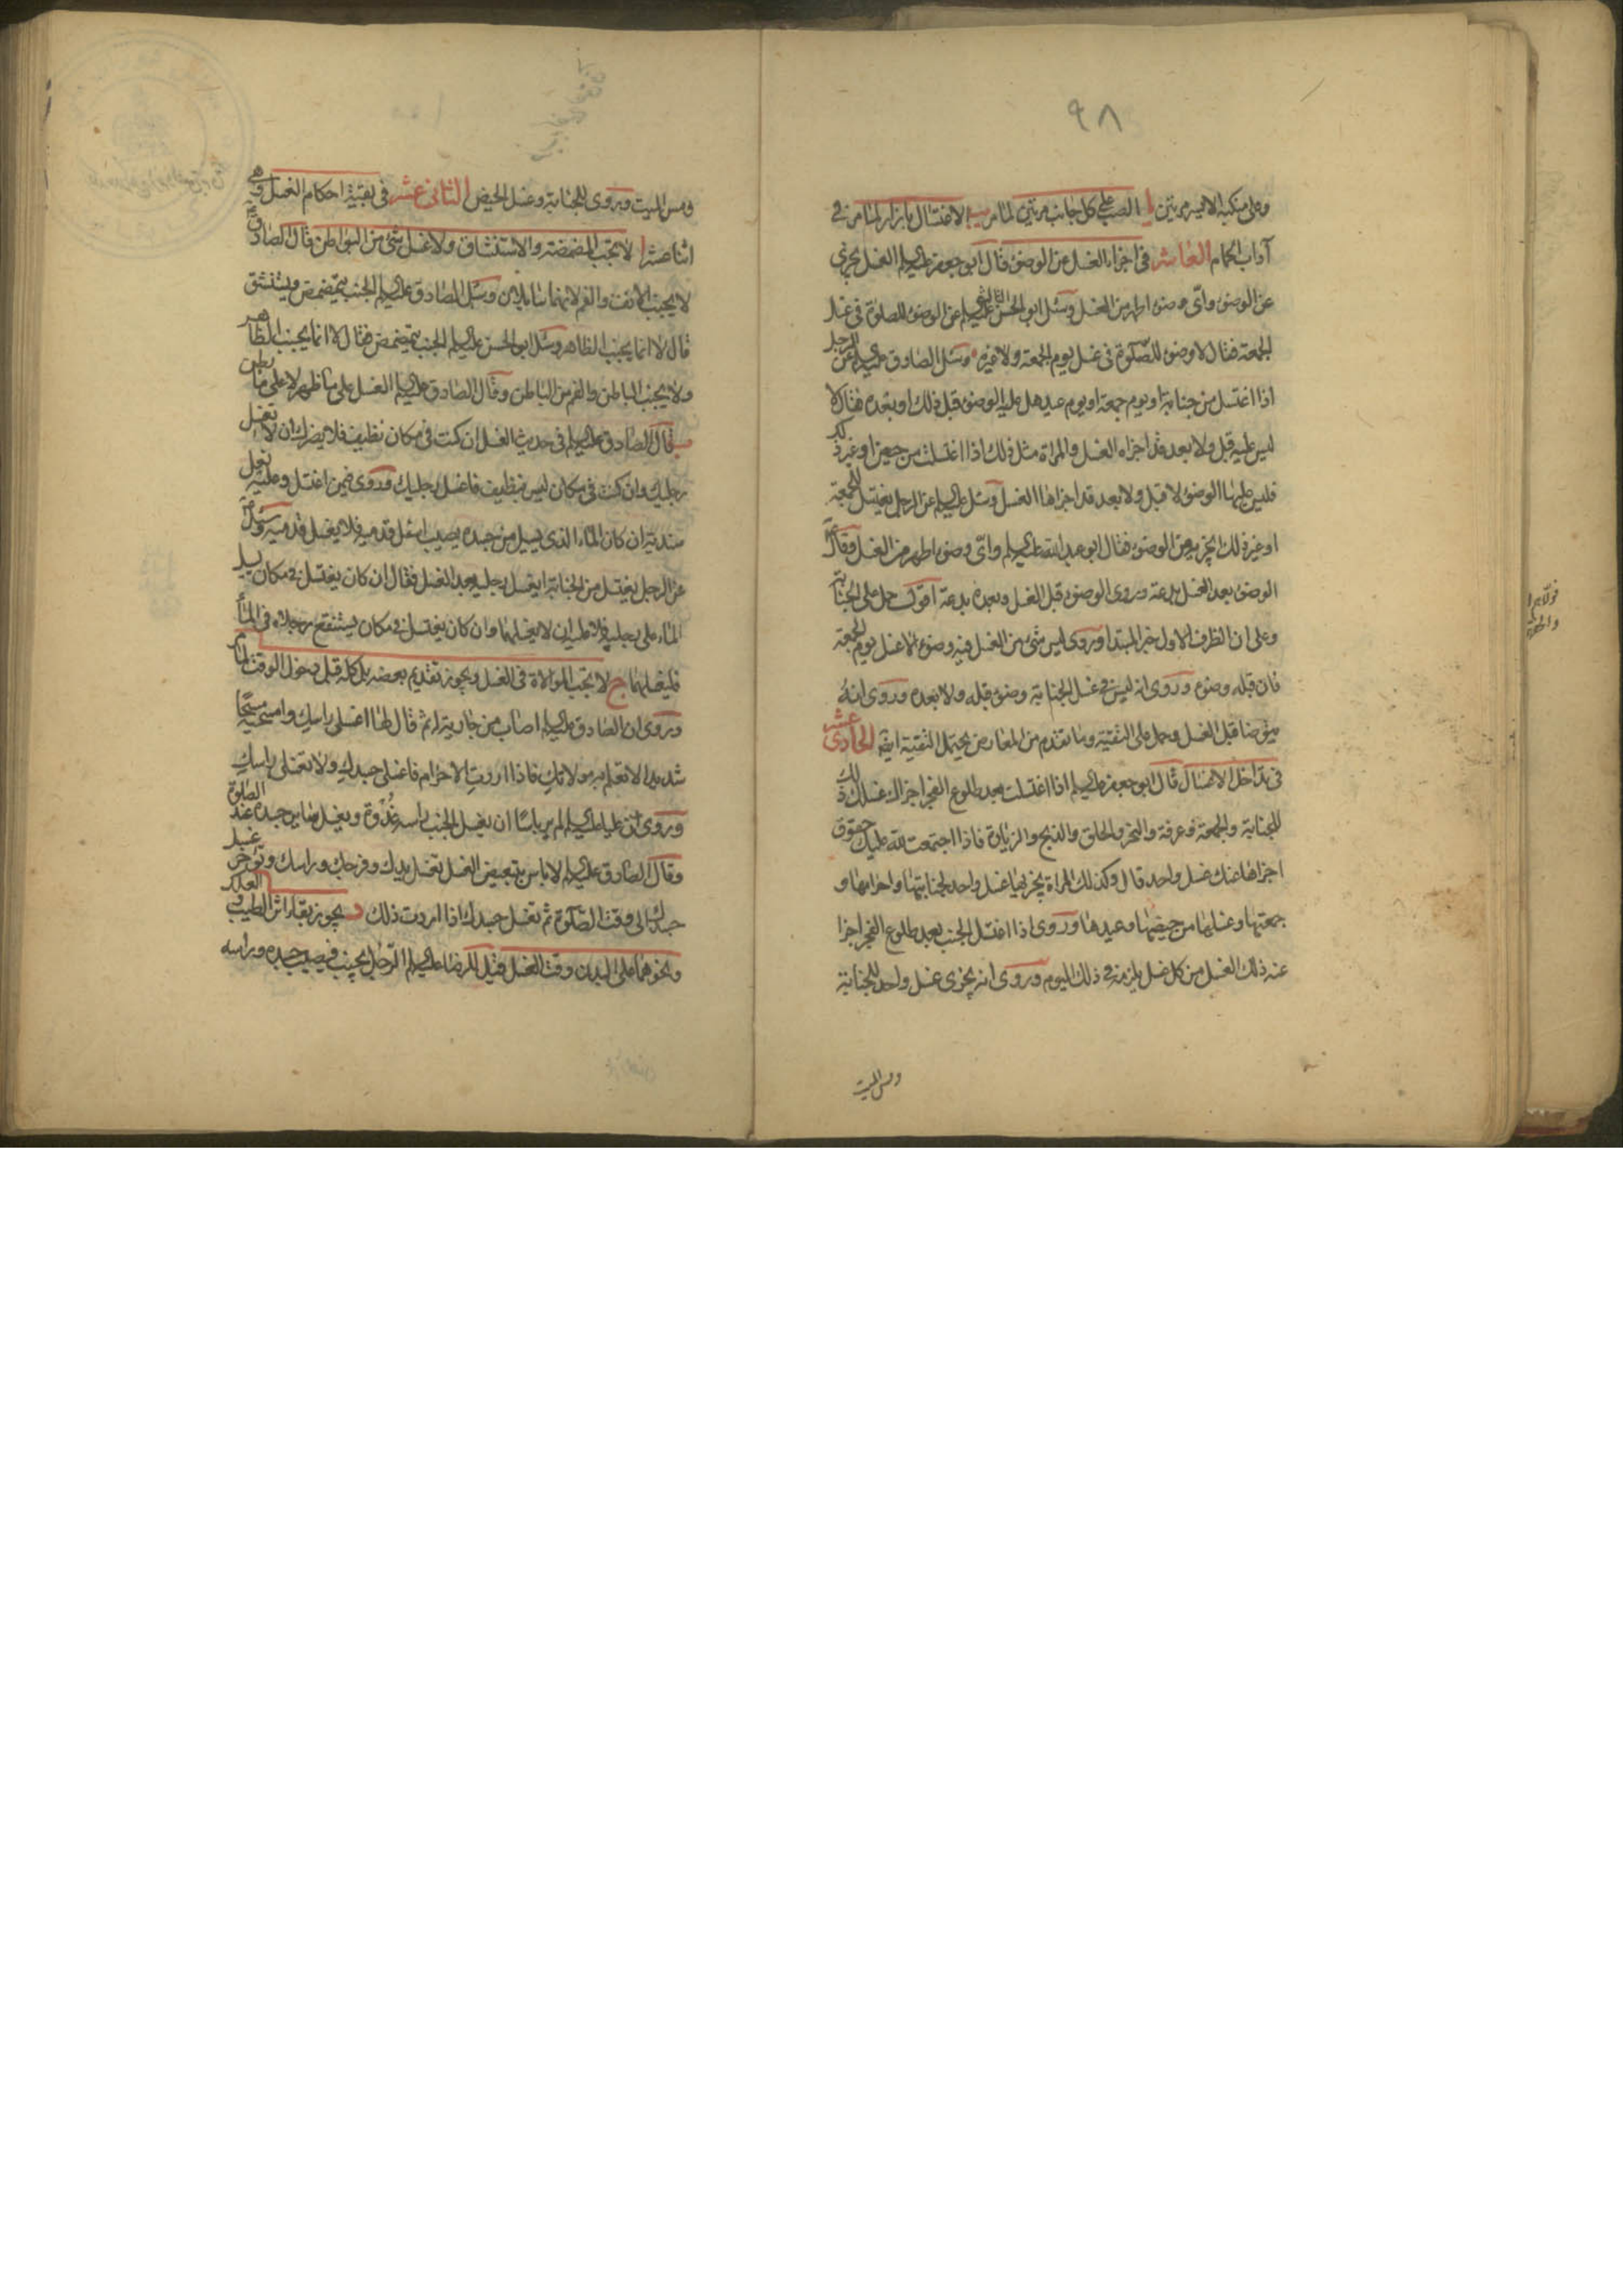 ٩٨
وعلى منكبه الايسر مرتين يا الصب على كل جانب مرتين لما مر يب الاغتسال بازار لما مر في
آداب الحمام العاشر في اجزاء الغسل عن الوضوء قال ابو جعفر عليه السلم الغسل يجزي
عن الوضوء واي وضوء اطهر من الغسل وسئل ابو الحسن الثالث عليه السلم عن الوضوء للصلوة في غسل
الجمعة فقال لا وضوء للصلوة في غسل يوم الجمعة ولا غيره وسئل الصادق عليه السلم عن الرجل
اذا اغتسل من جنابة او يوم جمعة او يوم عيد هل عليه الوضوء قبل ذلك او بعده فقال لا
ليس عليه قبل ولا بعد قد اجزاه الغسل والمراة مثل ذلك اذا اغتسلت من حيض او غير ذلك
فليس عليها الوضوء لا قبل ولا بعد قد اجزاها الغسل وسئل عليه السلم عن الرجل يغتسل للجمعة
او غير ذلك ايجزيه من الوضوء فقال ابو عبد الله عليه السلم واي وضوء اطهر من الغسل وقال ع
الوضوء بعد الغسل بدعة وروى الوضوء قبل الغسل وبعده بدعة اقول حمل على الجنابة
وعلى ان الظرف الاول خبر المبتدا وروى ليس شيء من الغسل فيه وضوء الا غسل يوم الجمعة
فان قبله وضوء وروى انه ليس في غسل الجنابة وضوء قبله ولا بعده وروى انه
يتوضا قبل الغسل وحمل على التقية وما تقدم من المعارض يحتمل التقية ايضا الحادى عشر
في تداخل الاغسال قال ابو جعفر عليه السلم اذا اغتسلت بعد طلوع الفجر اجزاك غسلك ذلك
للجنابة والجمعة وعرفة والنحر والحلق والذبح والزيارة فاذا اجتمعت لله عليك حقوق
اجزاها عنك غسل واحد قال وكذلك المراة يجزيها غسل واحد لجنابتها واحرامها و
جمعتها وغسلها من حيضها وعيدها وروى اذا اغتسل الجنب بعد طلوع الفجر اجزا
عنه ذلك الغسل من كل غسل يلزمه في ذلك اليوم وروى انه يجزى غسل واحد للجنابة
ومس الميت
ومس الميت وروى للجنابة وغسل الحيض الثانى عشر في بقية احكام الغسل وهي
اثنا عشر ا لا تجب المضمضة والاستنشاق ولا غسل شيء من البواطن قال الصادق ع
لا يجنب الانف والفم لانهما سائلان وسئل الصادق عليه السلم الجنب يتمضمض ويستنشق
قال لا انما يجنب الظاهر وسئل ابو الحسن عليه السلم الجنب يتمضمض فقال لا انما يجنب الظاهر
ولا يجنب الباطن والفم من الباطن وقال الصادق عليه السلم الغسل على ما ظهر لا على ما بطن
ب قال الصادق عليه السلم في حديث الغسل ان كنت في مكان نظيف فلا يضرك ان لا تغسل
رجليك وان كنت في مكان ليس بنظيف فاغسل رجليك وروى فيمن اغتسل وعليه نعل
سندية ان كان الماء الذي يسيل من جسده يصيب اسفل قدميه فلا يغسل قدميه وسئل ع
عن الرجل يغتسل من الجنابة ايغسل رجليه بعد الغسل فقال ان كان يغتسل في مكان يسيل
الماء على رجليه فلا عليه ان لا يغسلهما وان كان يغتسل في مكان يستنقع رجلاه في الماء
فليغسلهما ج لا تجب الموالاة في الغسل ويجوز تقديم بعضه بل كله قبل دخول الوقت لما مر
وروى ان الصادق عليه السلم اصاب من جارية له ثم قال لها اغسلي راسك وامسحيه مسحا
شديدا لا تعلم به مولاتك فاذا اردت الاحرام فاغسلي جسدك ولا تغسلي راسك
وروى ان عليا عليه السلم لم ير باسا ان يغسل الجنب راسه غدوة ويغسل سائر جسده عند الصلوة
وقال الصادق عليه السلم لا باس بتبعيض الغسل تغسل يديك وفرجك وراسك وتؤخر غسل
جسدك الى وقت الصلوة ثم تغسل جسدك اذا اردت ذلك د يجوز بقاء اثر الطيب والعلك
ونحوهما على البدن وقت الغسل قيل للرضا عليه السلم الرجل يجنب فيصيب جسده وراسه